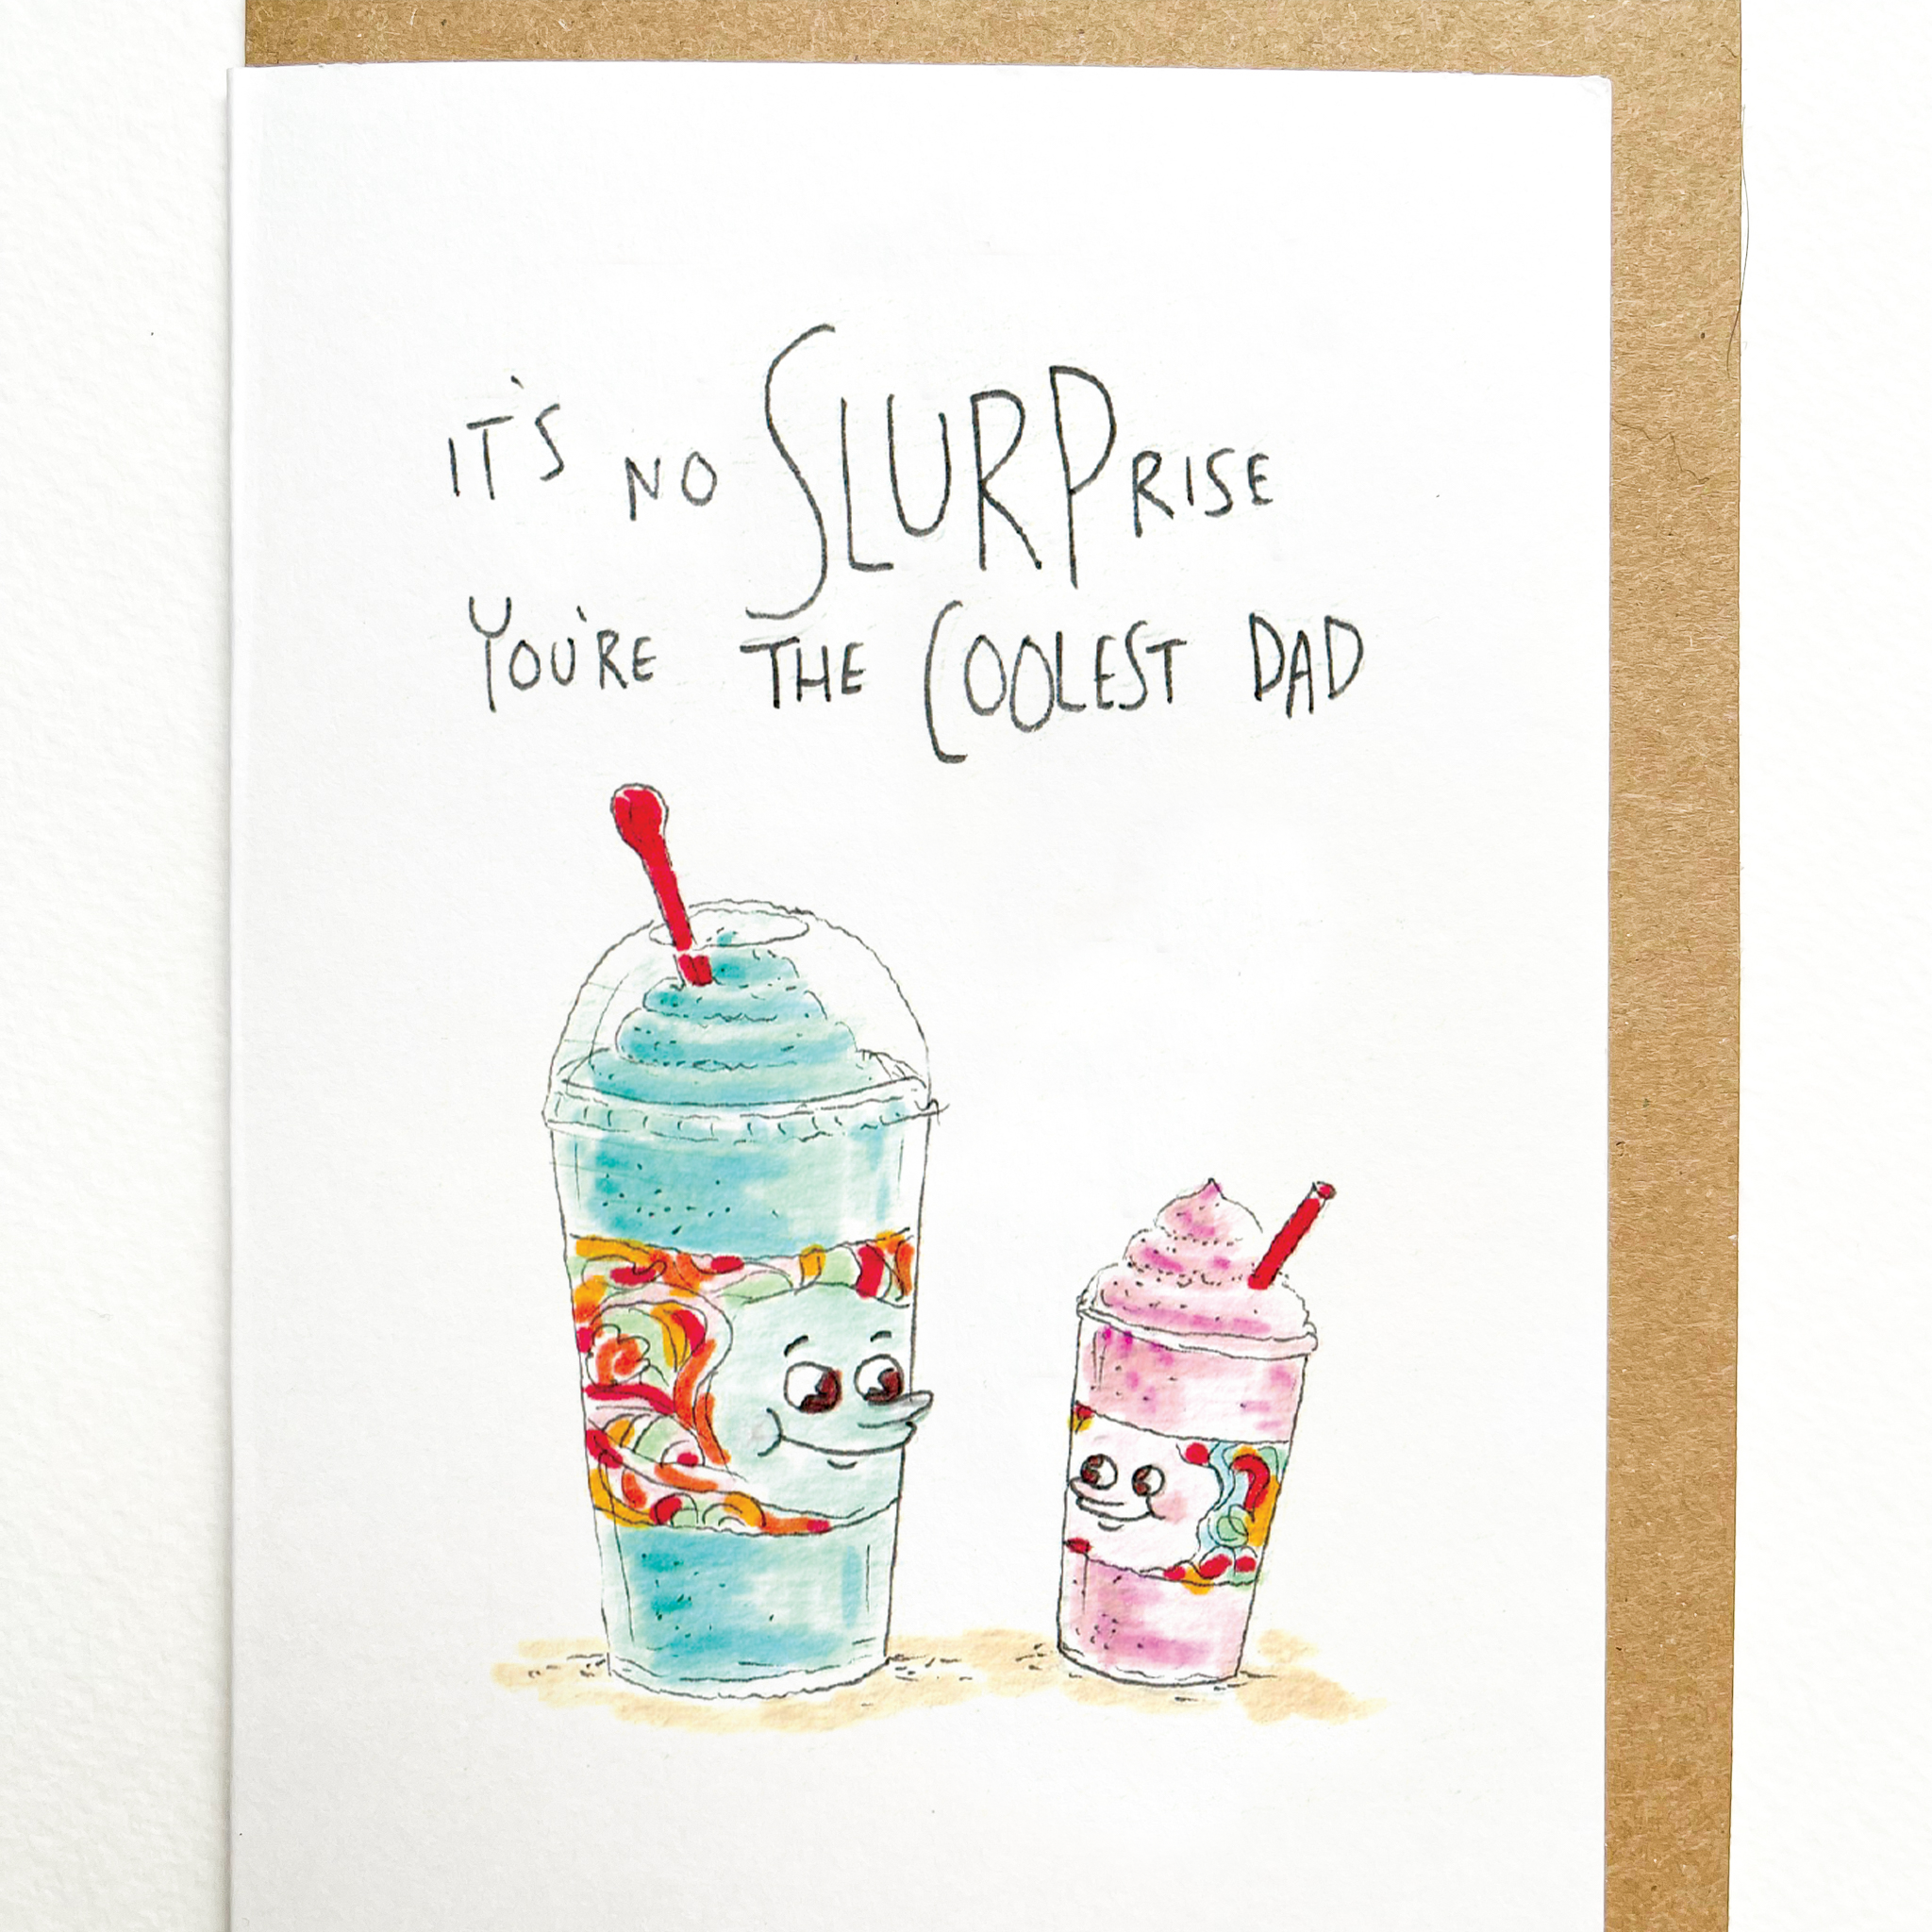 IT'S NO SLURPRISE
YOU'RE THE COOLEST DAD